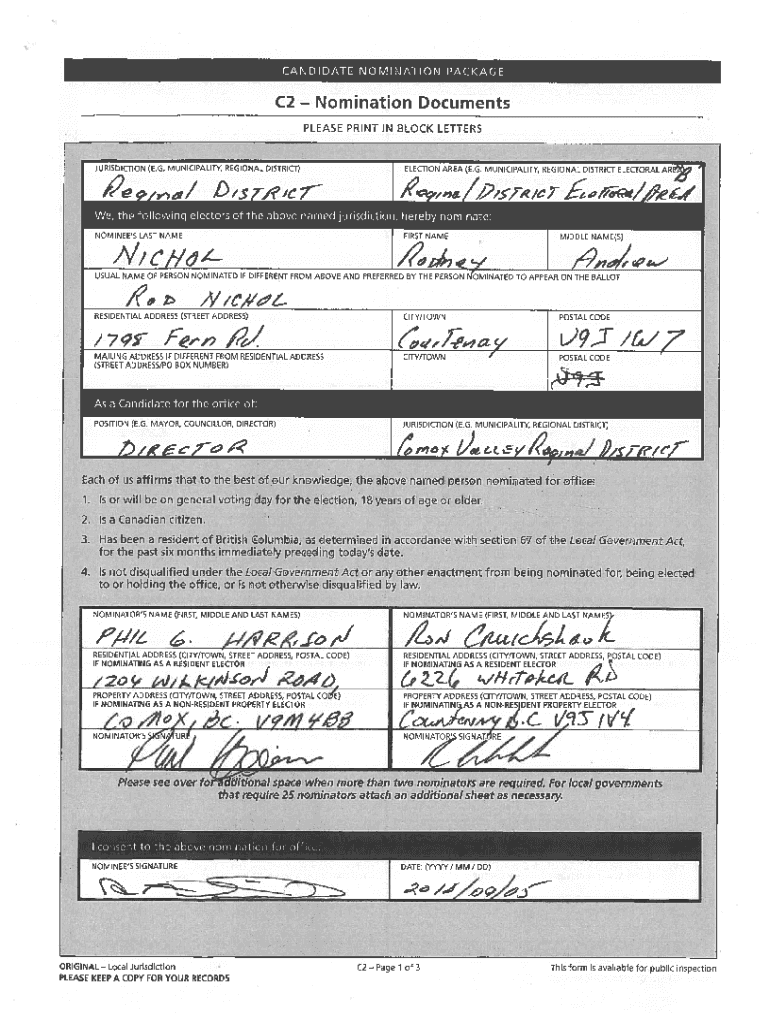 CANDIDATE NOMINATION PACKAGE
C2 – Nomination Documents
PLEASE PRINT IN BLOCK LETTERS
JURISDICTION (E.G. MUNICIPALITY, REGIONAL DISTRICT)
Reginal DISTRICT
ELECTION AREA (E.G. MUNICIPALITY, REGIONAL DISTRICT ELECTORAL AREA)
"B"
Reginal DISTRICT Electoral AREA
We, the following electors of the above named jurisdiction, hereby nominate:
NOMINEE'S LAST NAME
NICHOL
FIRST NAME
Rodney
MIDDLE NAME(S)
Andrew
USUAL NAME OF PERSON NOMINATED IF DIFFERENT FROM ABOVE AND PREFERRED BY THE PERSON NOMINATED TO APPEAR ON THE BALLOT
ROD NICHOL
RESIDENTIAL ADDRESS (STREET ADDRESS)
1798 Fern Rd.
CITY/TOWN
Courtenay
POSTAL CODE
V9J 1W7
MAILING ADDRESS IF DIFFERENT FROM RESIDENTIAL ADDRESS
(STREET ADDRESS/PO BOX NUMBER)
CITY/TOWN
POSTAL CODE
V9J
As a Candidate for the office of:
POSITION (E.G. MAYOR, COUNCILLOR, DIRECTOR)
DIRECTOR
JURISDICTION (E.G. MUNICIPALITY, REGIONAL DISTRICT)
Comox Valley Reginal DISTRICT
Each of us affirms that to the best of our knowledge, the above named person nominated for office:
1. Is or will be on general voting day for the election, 18 years of age or older.
2. Is a Canadian citizen.
3. Has been a resident of British Columbia, as determined in accordance with section 67 of the Local Government Act,
for the past six months immediately preceding today's date.
4. Is not disqualified under the Local Government Act or any other enactment from being nominated for, being elected
to or holding the office, or is not otherwise disqualified by law.
NOMINATOR'S NAME (FIRST, MIDDLE AND LAST NAMES)
PHIL G. HARRISON
RESIDENTIAL ADDRESS (CITY/TOWN, STREET ADDRESS, POSTAL CODE)
IF NOMINATING AS A RESIDENT ELECTOR
1204 WILKINSON ROAD,
PROPERTY ADDRESS (CITY/TOWN, STREET ADDRESS, POSTAL CODE)
IF NOMINATING AS A NON-RESIDENT PROPERTY ELECTOR
COMOX, BC. V9M4B3
NOMINATOR'S SIGNATURE
NOMINATOR'S NAME (FIRST, MIDDLE AND LAST NAMES)
RON Cruickshank
RESIDENTIAL ADDRESS (CITY/TOWN, STREET ADDRESS, POSTAL CODE)
IF NOMINATING AS A RESIDENT ELECTOR
6226 WHITAKER RD
PROPERTY ADDRESS (CITY/TOWN, STREET ADDRESS, POSTAL CODE)
IF NOMINATING AS A NON-RESIDENT PROPERTY ELECTOR
Courtenay B.C V9J 1V4
NOMINATOR'S SIGNATURE
Please see over for additional space when more than two nominators are required. For local governments
that require 25 nominators attach an additional sheet as necessary.
I consent to the above nomination for office:
NOMINEE'S SIGNATURE
DATE: (YYYY / MM / DD)
2014/09/05
ORIGINAL – Local Jurisdiction
PLEASE KEEP A COPY FOR YOUR RECORDS
C2 – Page 1 of 3
This form is available for public inspection